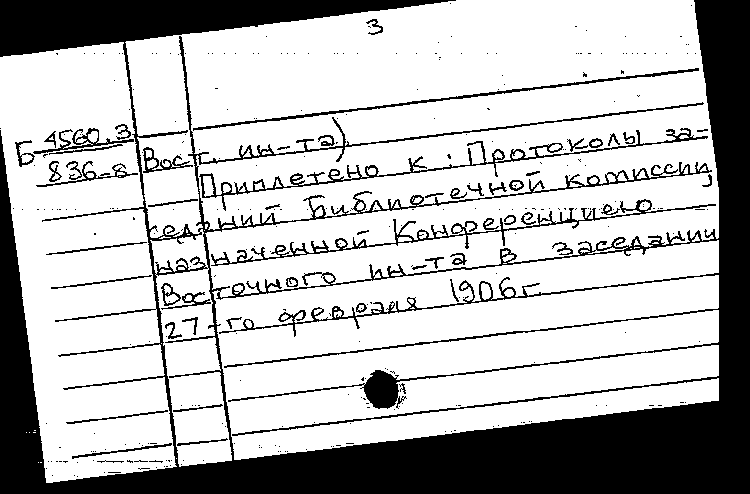 3
Б 4560.3
836-8
Вост. ин-та)
Приплетено к: Протоколы за-
седаний Библиотечной комиссии,
назначенной Конференциею
Восточного ин-та в заседании
27-го февраля 1906г.